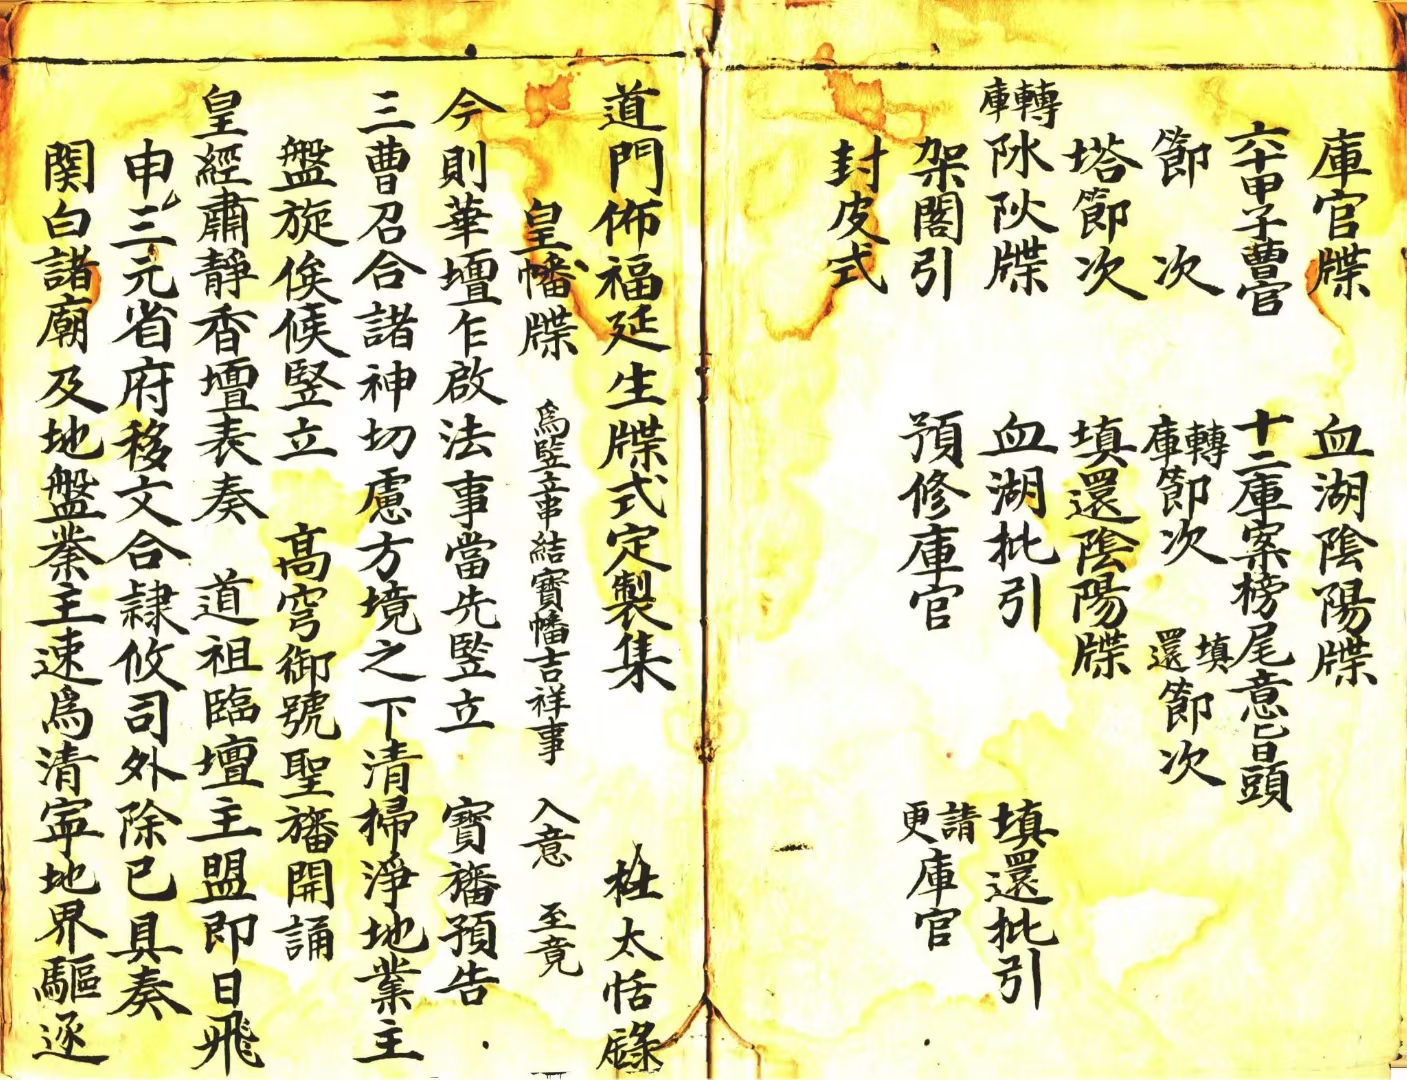 庫官牒 血湖陰陽牒
六十甲子曹官 十二庫案榜尾意旨頭
節次 轉庫節次 填還節次
塔節次 填還陰陽牒
轉庫阥阦牒 血湖批引 填還批引
架閣引 預修庫官 請更庫官
封皮式
道門佈福延生牒式定製集 杜太恬錄
皇幡牒 為竪立事結寶幡吉祥事 入意 至竟
今則華壇乍啟法事當先竪立 寶旛預告
三曹召合諸神切慮方境之下清掃淨地業主
盤旋俟候竪立 高穹御號聖旛開誦
皇經肅靜香壇表奏 道祖臨壇主盟即日飛
申三元省府移文合隷攸司外除已具奏
関白諸廟及地盤業主速為清寜地界驅逐